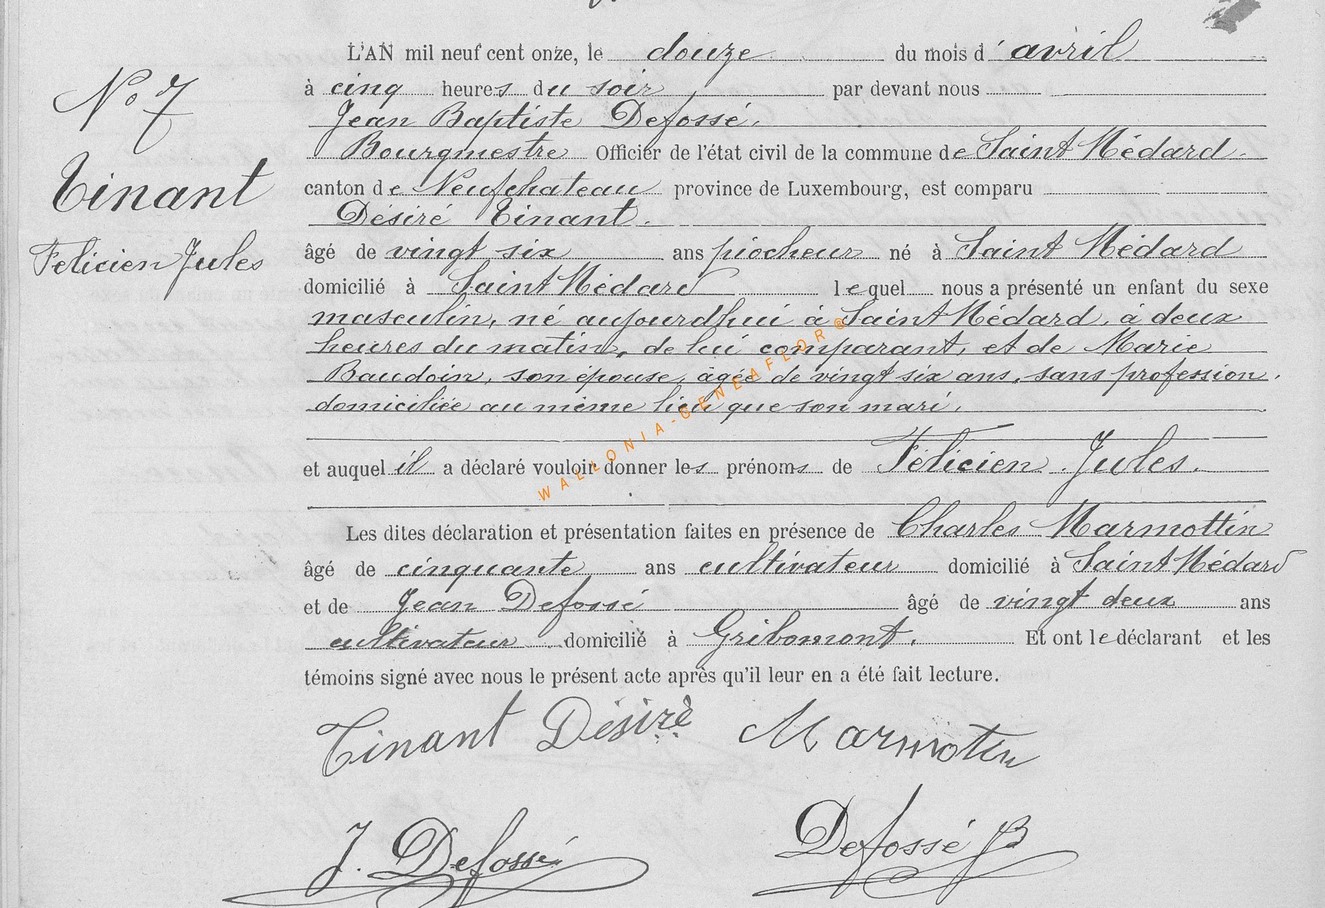 L'AN mil neuf cent onze, le douze du mois d'avril
N° 7
à cinq heures du soir par devant nous
Jean Baptiste Defossé.
Bourgmestre Officier de l'état civil de la commune de Saint Médard.
Tinant
canton de Neufchateau province de Luxembourg, est comparu
Désiré Tinant.
Felicien Jules
âgé de vingt six ans piocheur né à Saint Médard
domicilié à Saint Médard lequel nous a présenté un enfant du sexe
masculin, né aujourdhui à Saint Médard, à deux
heures du matin, de lui comparant, et de Marie
Baudoin, son épouse, âgée de vingt six ans, sans profession,
domiciliée au même lieu que son mari.
WALLONIA-GENEAFLOR®
et auquel il a déclaré vouloir donner les prénoms de Félicien Jules.
Les dites déclaration et présentation faites en présence de Charles Marmottin
âgé de cinquante ans cultivateur domicilié à Saint Médard
et de Jean Defossé âgé de vingt deux ans
cultivateur domicilié à Gribomont. Et ont le déclarant et les
témoins signé avec nous le présent acte après qu'il leur en a été fait lecture.
Tinant Désiré Marmotin
J. Defossé Defossé JB